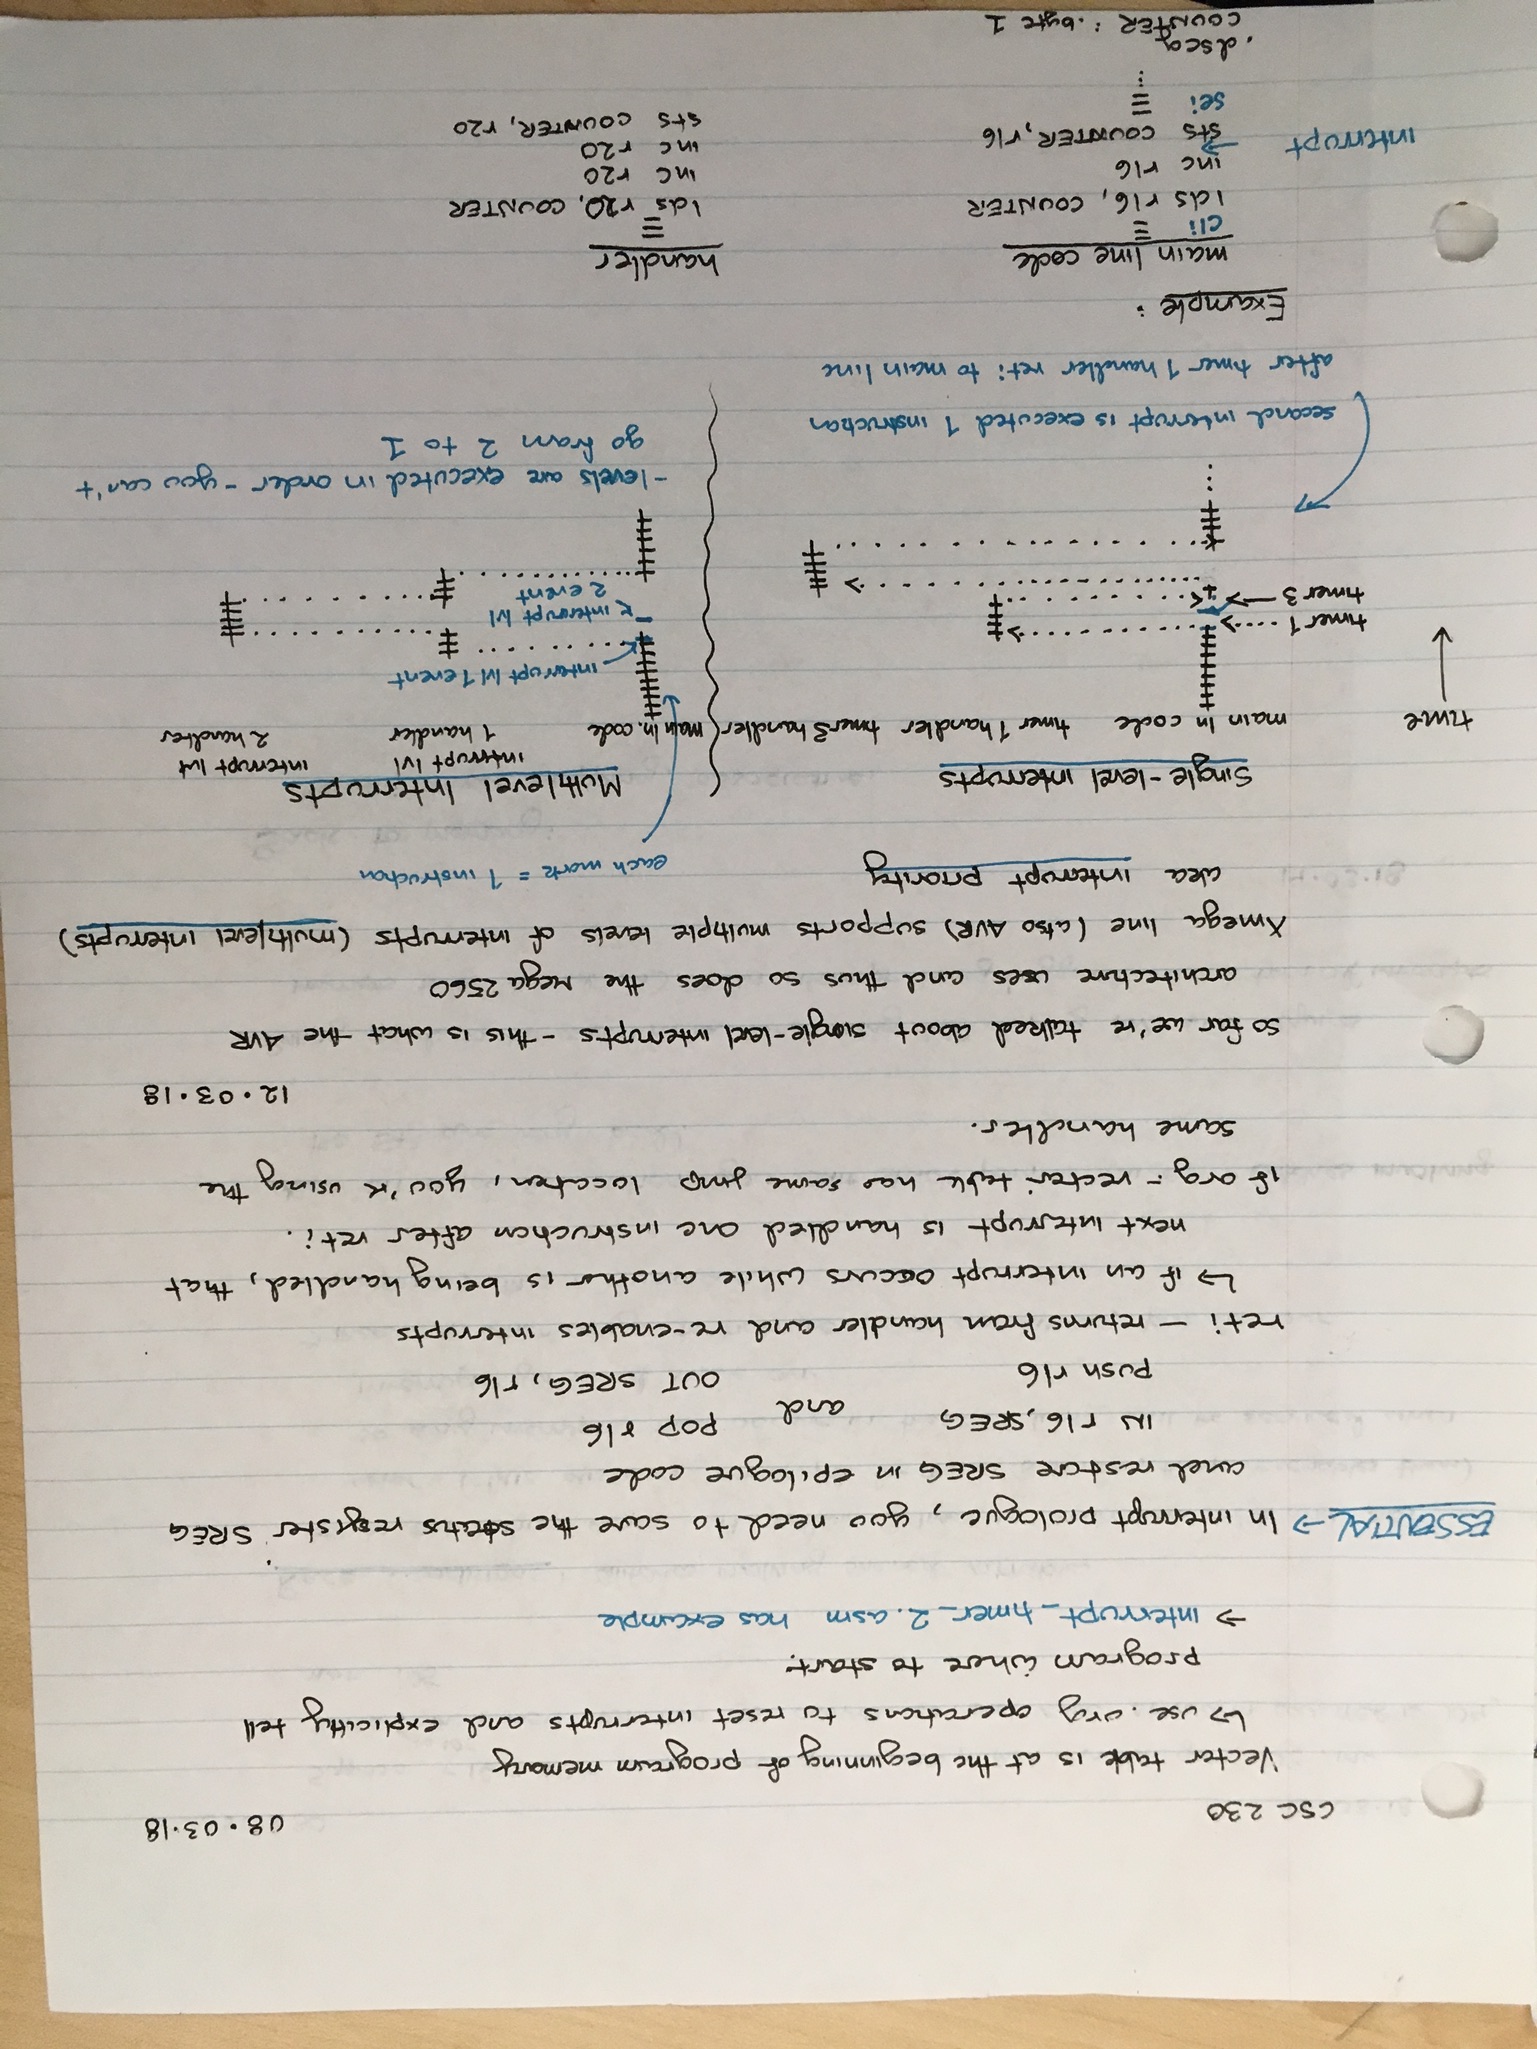 CSC 230 08·03·18
Vector table is at the beginning of program memory
↳ use .org operations to reset interrupts and explicitly tell
program where to start.
→ interrupt_timer_2.asm has example
ESSENTIAL → In interrupt prologue, you need to save the status register SREG
and restore SREG in epilogue code
IN r16, SREG and POP r16
push r16 OUT SREG, r16
reti — returns from handler and re-enables interrupts
↳ if an interrupt occurs while another is being handled, that
next interrupt is handled one instruction after reti.
if org - vector table has same jmp location, you're using the
same handler.
12·03·18
so far we've talked about single-level interrupts - this is what the AVR
architecture uses and thus so does the Mega 2560
Xmega line (also AVR) supports multiple levels of interrupts (multilevel interrupts)
aka interrupt priority
each mark = 1 instruction
Single-level interrupts
time
main ln code timer 1 handler timer3 handler
timer 1
timer 3
second interrupt is executed 1 instruction
after timer 1 handler reti to main line
Multilevel Interrupts
main ln. code interrupt lvl 1 handler interrupt lvl 2 handler
interrupt lvl 1 event
interrupt lvl
2 event
- levels are executed in order - you can't
go from 2 to 1
Example:
main line code
cli
lds r16, COUNTER
inc r16
interrupt →
sts COUNTER, r16
sei
.dseg
COUNTER: .byte 1
handler
lds r20, COUNTER
inc r20
inc r20
sts COUNTER, r20